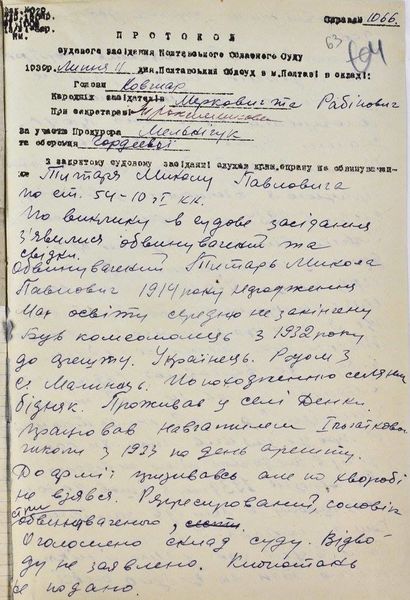 Справа № 1066
63
704
П Р О Т О К О Л
судового засідання Полтавського Обласного Суду
193 р. Липня 11 дня. Полтавський Облсуд в м. Полтаві в складі:
Голови Ковшар
Народніх засідателів Меркович та Рабінович
При секретарі
За участю Прокурора Мельничук
та оборонця Гордеєвої
З закритому судовому засіданні слухав крим. справу по обвинувачен-
ню Титаря Миколу Павловича
по ст. 54-10 ч I КК.
По виклику в судове засідання
з'явилися обвинувачений та
свідки.
Обвинувачений Титарь Микола
Павлович 1914 року народження
Має освіту середню не закінчену
Був комсомолець з 1932 року
до арешту. Українець. Родом з
с. По походженню селянин
бідняк. Проживав у селі Деньки.
Працював навчателем Початкової
школи з 1933 по день арешту.
До армії призивавсь але по хворобі
не взявся. Репресирований, чоловік
при
обвинуваченого,
Оголошено склад суду. Відво-
ду не заявлено. Клопотань
не подано.